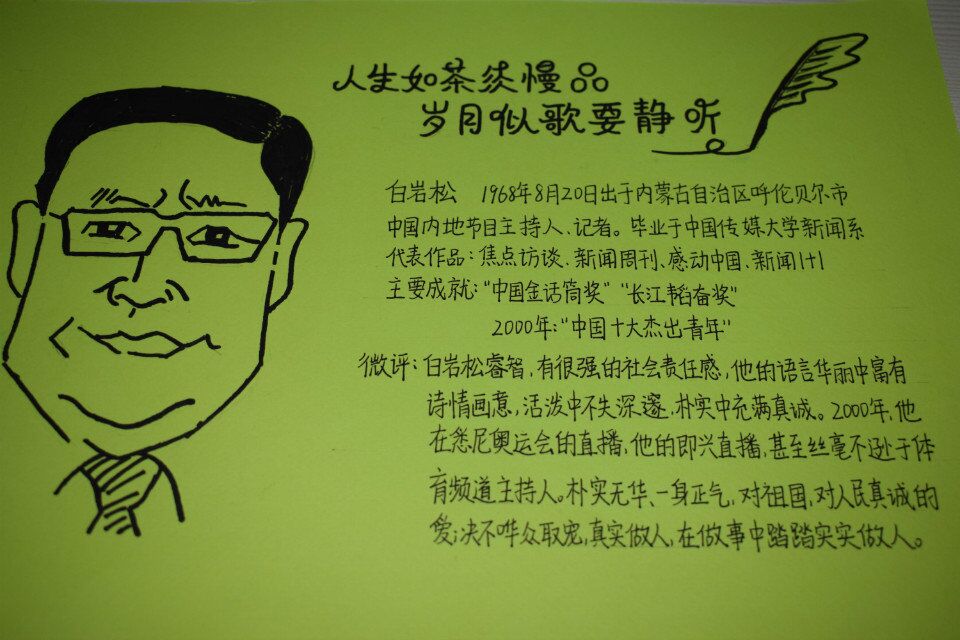 人生如茶须慢品
岁月似歌要静听
白岩松 1968年8月20日出于内蒙古自治区呼伦贝尔市
中国内地节目主持人、记者。毕业于中国传媒大学新闻系
代表作品：焦点访谈、新闻周刊、感动中国、新闻1+1
主要成就：“中国金话筒奖” “长江韬奋奖”
2000年：“中国十大杰出青年”
微评：白岩松睿智，有很强的社会责任感，他的语言华丽中富有
诗情画意，活泼中不失深邃，朴实中充满真诚。2000年，他
在悉尼奥运会的直播，他的即兴直播，甚至丝毫不逊于体
育频道主持人。朴实无华、一身正气，对祖国，对人民真诚的
爱；决不哗众取宠，真实做人，在做事中踏踏实实做人。